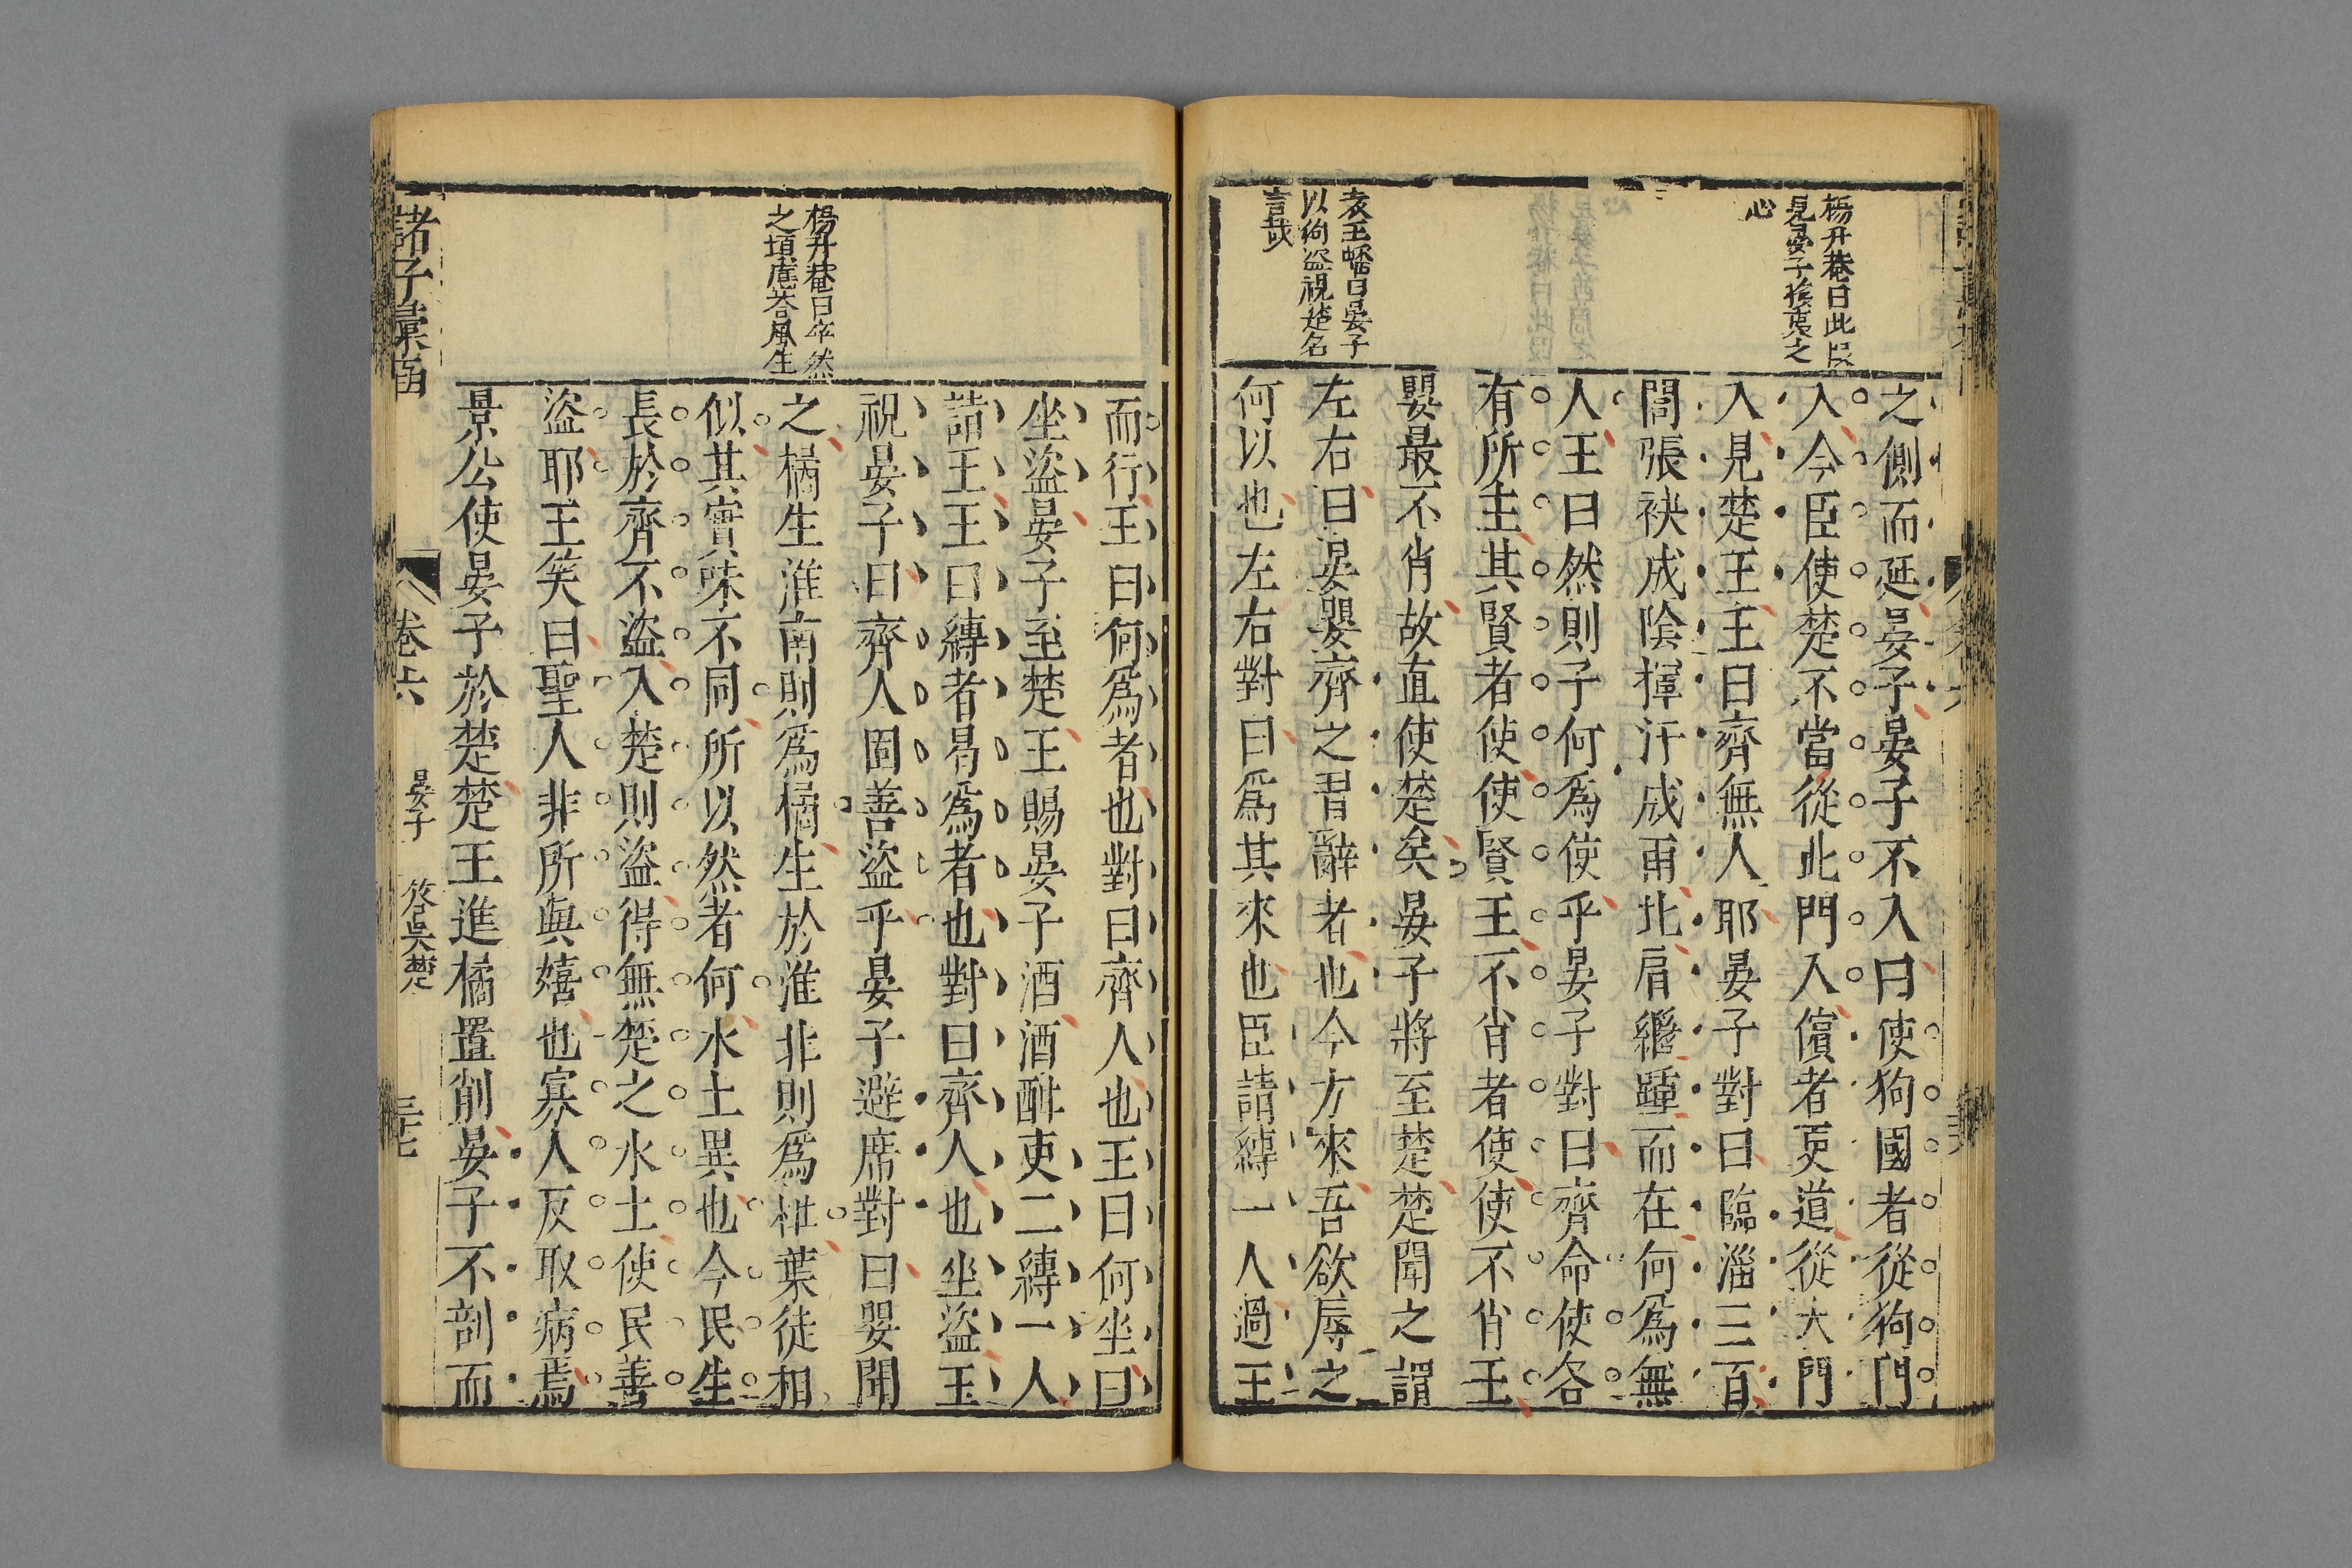 楊升菴曰此段
見晏子挨夷之
心
袁玉蟠曰晏子
以狗盜視楚名
言哉
之側而延晏子晏子不入曰使狗國者從狗門
入今臣使楚不當從此門入儐者更道從大門
入見楚王王曰齊無人耶晏子對曰臨淄三百
閭張袂成陰揮汗成雨北肩繼踵而在何爲無
人王曰然則子何爲使乎晏子對曰齊命使各
有所主其賢者使使賢王不肖者使使不肖王
嬰最不肖故直使楚矣晏子將至楚楚聞之謂
左右曰晏嬰齊之習辭者也今方來吾欲辱之
何以也左右對曰爲其來也臣請縛一人過王
楊升菴曰卒然
之頃應荅風生
而行王曰何爲者也對曰齊人也王曰何坐曰
坐盜晏子至楚王賜晏子酒酒酣吏二縛一人
詣王王曰縛者曷爲者也對曰齊人也坐盜王
視晏子曰齊人固善盜乎晏子避席對曰嬰聞
之橘生淮南則爲橘生於淮非則爲枳葉徒相
似其實味不同所以然者何水土異也今民生
長於齊不盜入楚則盜得無楚之水土使民善
盜耶王笑曰聖人非所與嬉也寡人反取病焉
景公使晏子於楚楚王進橘置削晏子不剖而
諸子彙函
卷六
晏子
答吳楚
三七